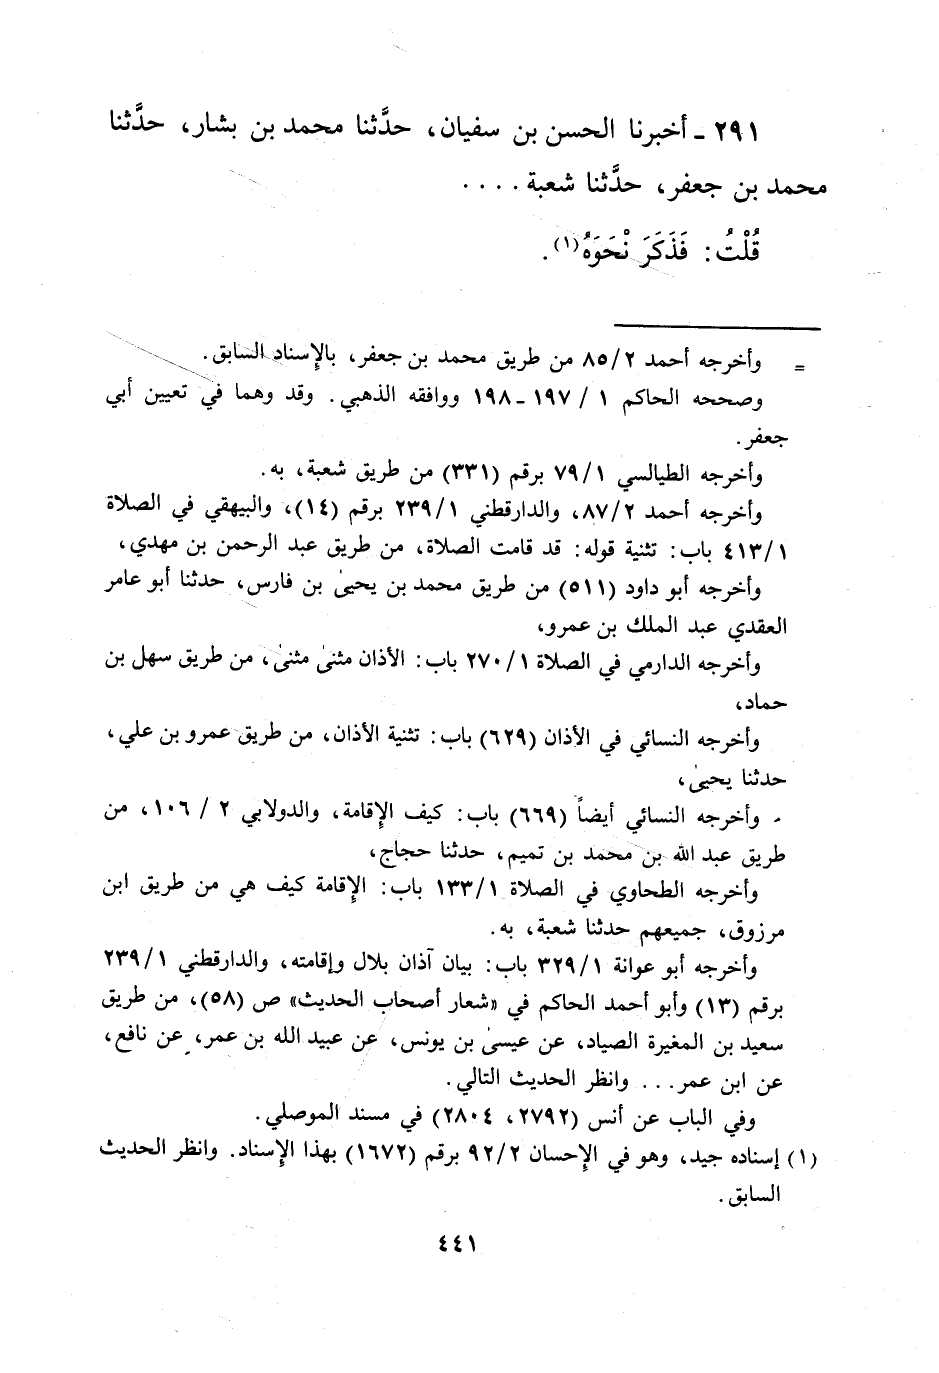 ٢٩١ - أخبرنا الحسن بن سفيان، حدَّثنا محمد بن بشار، حدَّثنا
محمد بن جعفر، حدَّثنا شعبة . . . .
قُلْتُ: فَذَكَرَ نْحَوَهُ(١).
= وأخرجه أحمد ٨٥/٢ من طريق محمد بن جعفر، بالإسناد السابق.
وصححه الحاكم ١ / ١٩٧ - ١٩٨ ووافقه الذهبي. وقد وهما في تعيين أبي
جعفر.
وأخرجه الطيالسي ٧٩/١ برقم (٣٣١) من طريق شعبة، به.
وأخرجه أحمد ٨٧/٢، والدارقطني ٢٣٩/١ برقم (١٤)، والبيهقي في الصلاة
٤١٣/١ باب: تثنية قوله: قد قامت الصلاة، من طريق عبد الرحمن بن مهدي،
وأخرجه أبو داود (٥١١) من طريق محمد بن يحيىٰ بن فارس، حدثنا أبو عامر
العقدي عبد الملك بن عمرو،
وأخرجه الدارمي في الصلاة ٢٧٠/١ باب: الأذان مثنىٰ مثنىٰ، من طريق سهل بن
حماد،
وأخرجه النسائي في الأذان (٦٢٩) باب: تثنية الأذان، من طريق عمرو بن علي،
حدثنا يحيىٰ،
وأخرجه النسائي أيضاً (٦٦٩) باب: كيف الإقامة، والدولابي ٢ / ١٠٦، من
طريق عبد الله بن محمد بن تميم، حدثنا حجاج،
وأخرجه الطحاوي في الصلاة ١٣٣/١ باب: الإقامة كيف هي من طريق ابن
مرزوق، جميعهم حدثنا شعبة، به.
وأخرجه أبو عوانة ٣٢٩/١ باب: بيان آذان بلال وإقامته، والدارقطني ٢٣٩/١
برقم (١٣) وأبو أحمد الحاكم في «شعار أصحاب الحديث» ص (٥٨)، من طريق
سعيد بن المغيرة الصياد، عن عيسىٰ بن يونس، عن عبيد الله بن عمر، عن نافع،
عن ابن عمر. . . وانظر الحديث التالي.
وفي الباب عن أنس (٢٧٩٢، ٢٨٠٤) في مسند الموصلي.
(١) إسناده جيد، وهو في الإحسان ٩٢/٢ برقم (١٦٧٢) بهذا الإسناد. وانظر الحديث
السابق.
٤٤١